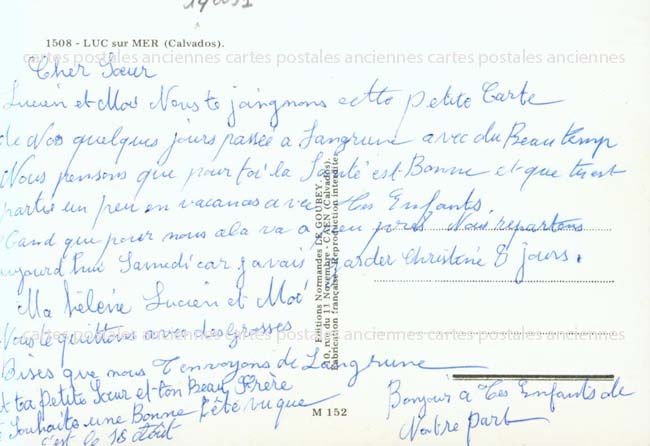 1508 - LUC sur MER (Calvados).
cartes postales anciennes cartes postales anciennes cartes postales anciennes
Cher Sœur
Lucien et Moi Nous te joingnons cette petite Carte
de Nos quelques jours passée a Langrune avec du Beau temp
Nous pensons que pour toi la Santé est Bonne et que tu est
partie un peu en vacances avec tes Enfants
Cand que pour nous cela va a peu près Nous repartons
aujourd'hui Samedi car j'avais garder Christine 8 jours.
Ma hélène Lucien et Moi
cartes postales anciennes cartes postales anciennes cartes postales anciennes
Nous te quittons avec des Grosses
Bises que nous t'envoyons de Langrune
et ta Petite Sœur et ton Beau Frère
te Souhaite une Bonne fête vu que
c'est le 18 août
Bonjour a tes Enfants de
Notre part
Editions Normandes LE GOUBEY
10, rue du 11 Novembre - CAEN (Calvados).
Fabrication française - Reproduction interdite.
M 152